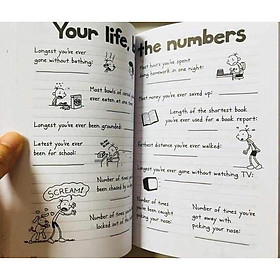 Your life, by the numbers
Longest you've ever
gone without bathing:
Most bowls of cereal you've
ever eaten at one time:
Longest you've ever been grounded:
Latest you've ever
been for school:
SCREAM!
Number of times you've
been chased by a dog:
Number of times you've been
locked out of the
Most hours you've spent
doing homework in one night:
Most money you've ever saved up:
Length of the shortest book
you've ever used for a book report:
Farthest distance you've ever walked:
Longest you've ever gone without watching TV:
Number of times
you've been caught
picking your nose:
Number of times you've
got away with
picking your nose: